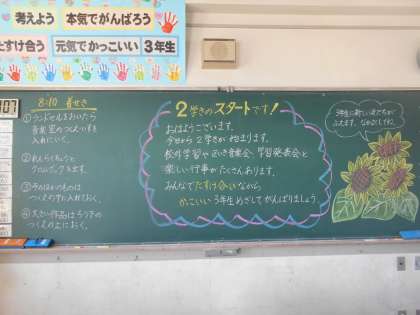 考えよう
本気でがんばろう
たすけ合う
元気でかっこいい
3年生
8:10 着せき
①ランドセルをおいたら
音楽室のつくえいすを
入れにいく。
②れんらくちょうと
③今のほかのものは
つくえの中に入れておく。
④大きい作品はろう下の
つくえの上におく。
2学きのスタートです!
おはようございます。
今日から2学きが始まります。
校外学習や 音楽会、学習発表会と
楽しい行事がたくさんあります。
みんなでたすけ合いながら
かっこいい3年生めざしてがんばりましょう
3年生に新しい友だちが
ふえます。なかよくしてね。